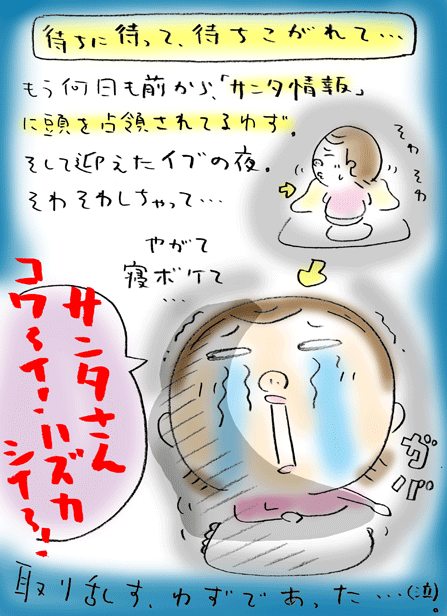 待ちに待って、待ちこがれて…
もう何日も前から、「サンタ情報」
に頭を占領されてるゆず。
そして迎えたイブの夜。
そわそわしちゃって…
そわ
そわ
やがて
寝ボケて
…
サンタさん
コワ〜イ〜!ハズカ
シイ〜!
ガバ
取り乱す、ゆずであった…(泣)。